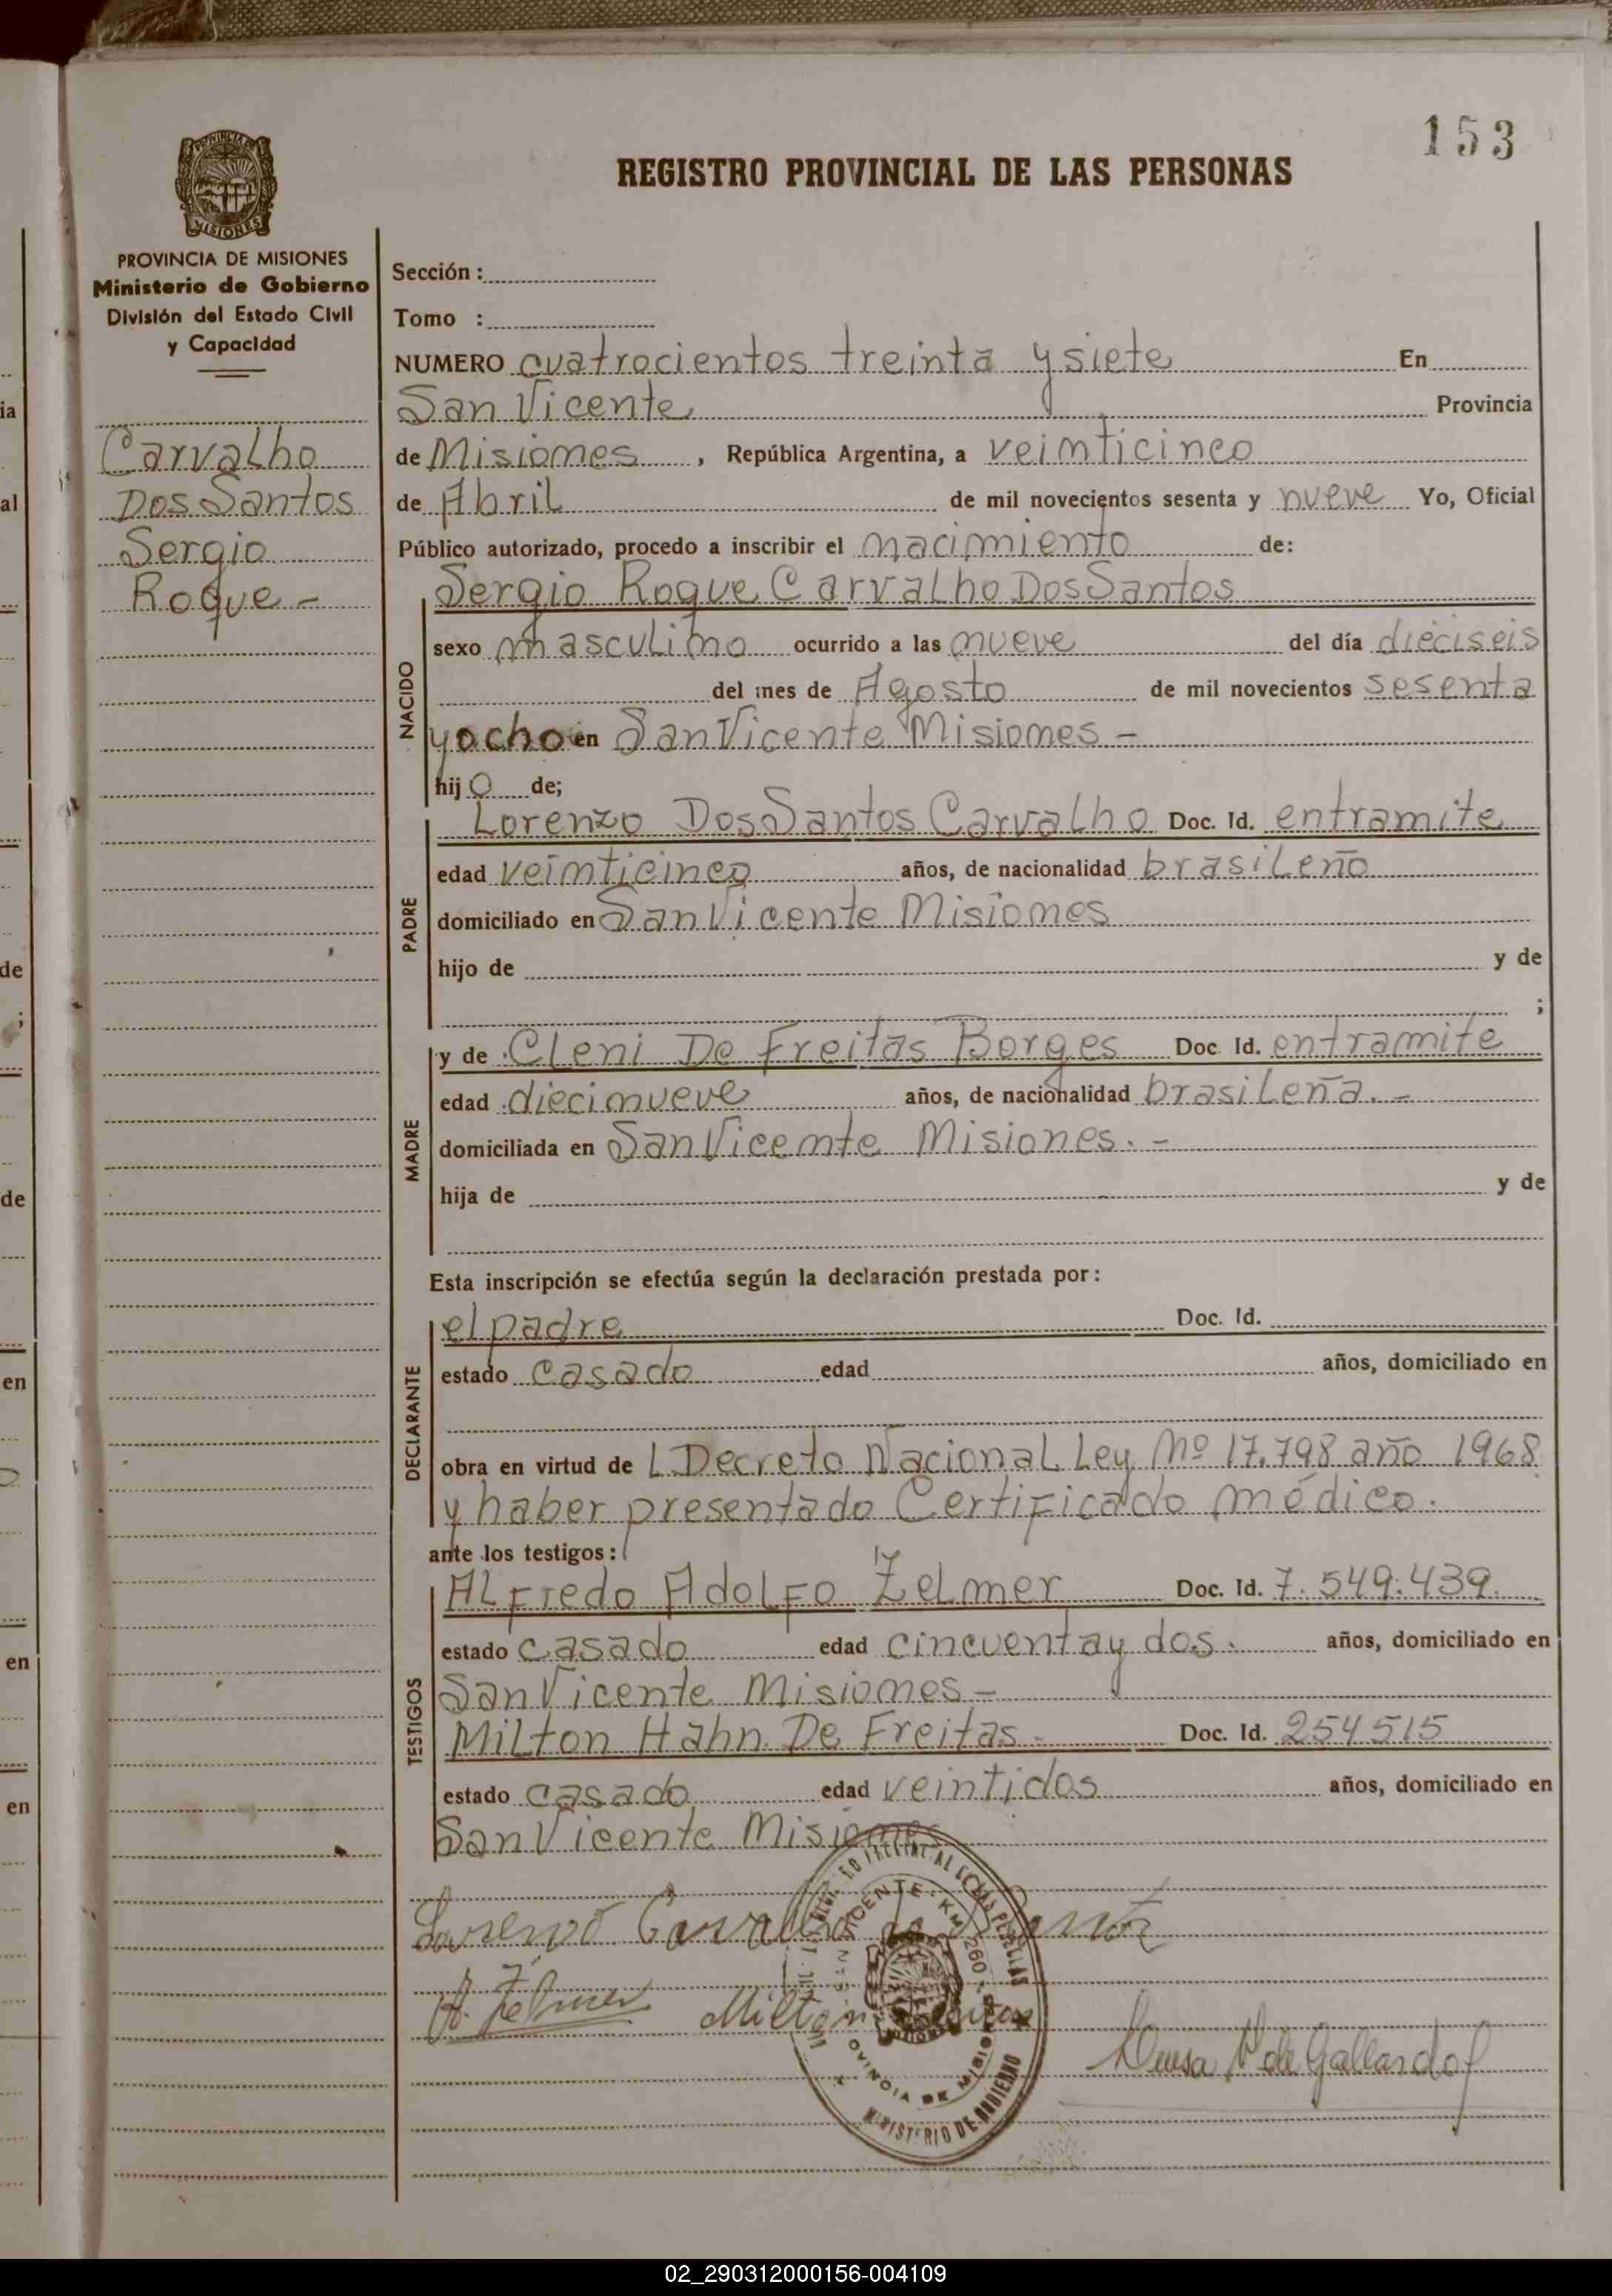 153
REGISTRO PROVINCIAL DE LAS PERSONAS
MISIONES
PROVINCIA DE MISIONES
Ministerio de Gobierno
División del Estado Civil
y Capacidad
Carvalho
Dos Santos
Sergio
Roque -
Sección :
Tomo :
NUMERO cuatrocientos treinta y siete En
San Vicente Provincia
de Misiones , República Argentina, a veinticinco
de Abril de mil novecientos sesenta y nueve Yo, Oficial
Público autorizado, procedo a inscribir el nacimiento de:
NACIDO
Sergio Roque Carvalho Dos Santos
sexo masculino ocurrido a las nueve del día dieciseis
del mes de Agosto de mil novecientos sesenta
y ocho en San Vicente Misiones -
hijo de;
PADRE
Lorenzo Dos Santos Carvalho Doc. Id. entramite
edad veinticinco años, de nacionalidad brasileño
domiciliado en San Vicente Misiones
hijo de y de
;
MADRE
y de Cleni De Freitas Borges Doc. Id. entramite
edad diecinueve años, de nacionalidad brasileña. -
domiciliada en San Vicente Misiones. -
hija de y de
Esta inscripción se efectúa según la declaración prestada por:
DECLARANTE
el padre Doc. Id.
estado casado edad años, domiciliado en
obra en virtud de L Decreto Nacional Ley Nº 17.798 año 1968
y haber presentado Certificado médico.
ante los testigos:
TESTIGOS
Alfredo Adolfo Zelmer Doc. Id. 7.549.439.
estado casado edad cincuenta y dos. años, domiciliado en
San Vicente Misiones -
Milton Hahn De Freitas - Doc. Id. 254515
estado casado edad veintidos años, domiciliado en
San Vicente Misiones
A. Zelmer Milton
de Gallardo
MINISTERIO DE GOBIERNO
02_290312000156-004109